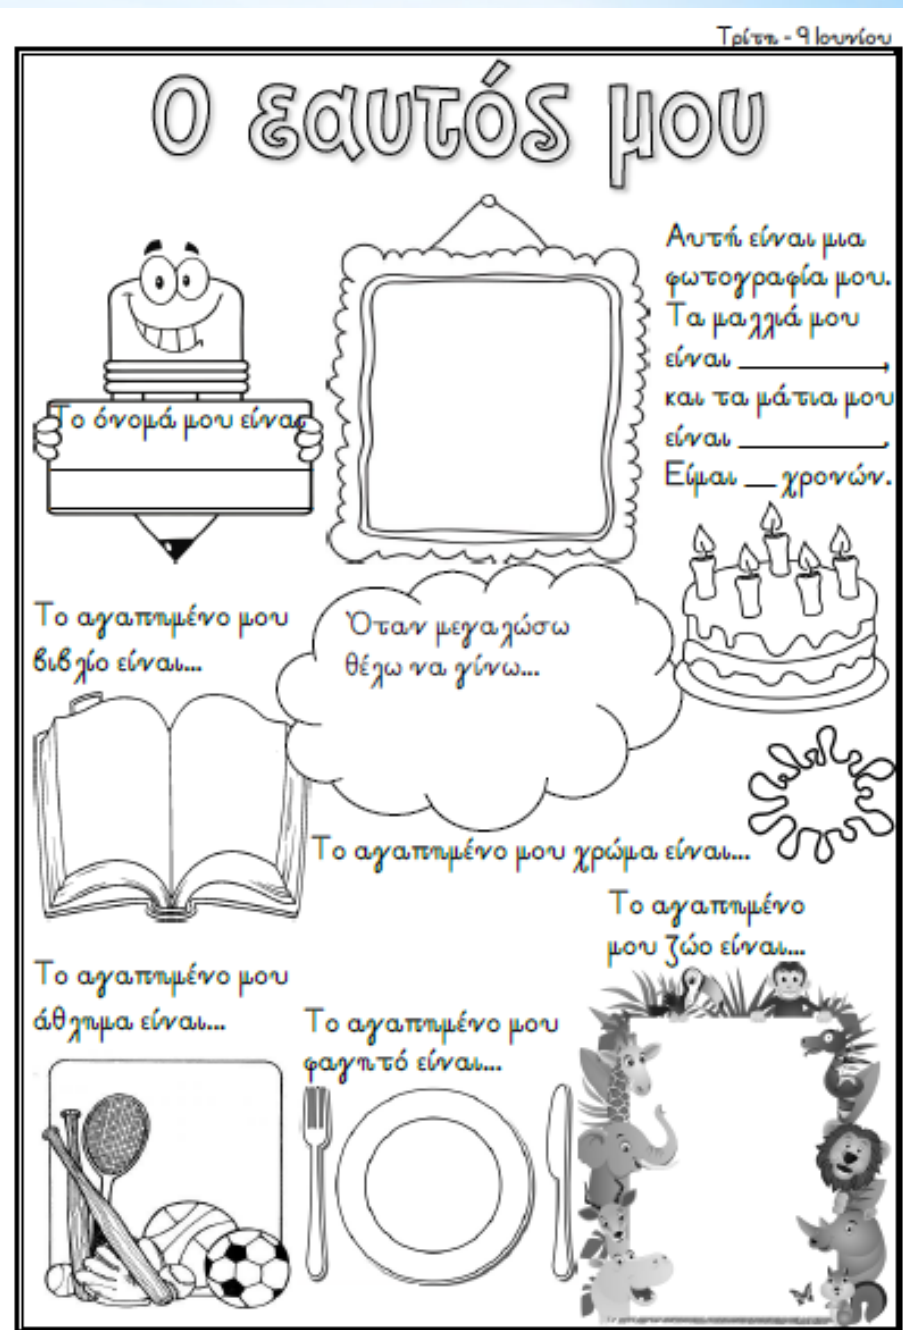 Τρίτη - 9 Ιουνίου
Ο εαυτός μου
Αυτή είναι μια
φωτογραφία μου.
Τα μαλλιά μου
είναι __________,
και τα μάτια μου
είναι __________.
Είμαι __ χρονών.
Το όνομά μου είναι
Το αγαπημένο μου
βιβλίο είναι...
Όταν μεγαλώσω
θέλω να γίνω...
Το αγαπημένο μου χρώμα είναι...
Το αγαπημένο
μου ζώο είναι...
Το αγαπημένο μου
άθλημα είναι...
Το αγαπημένο μου
φαγητό είναι...